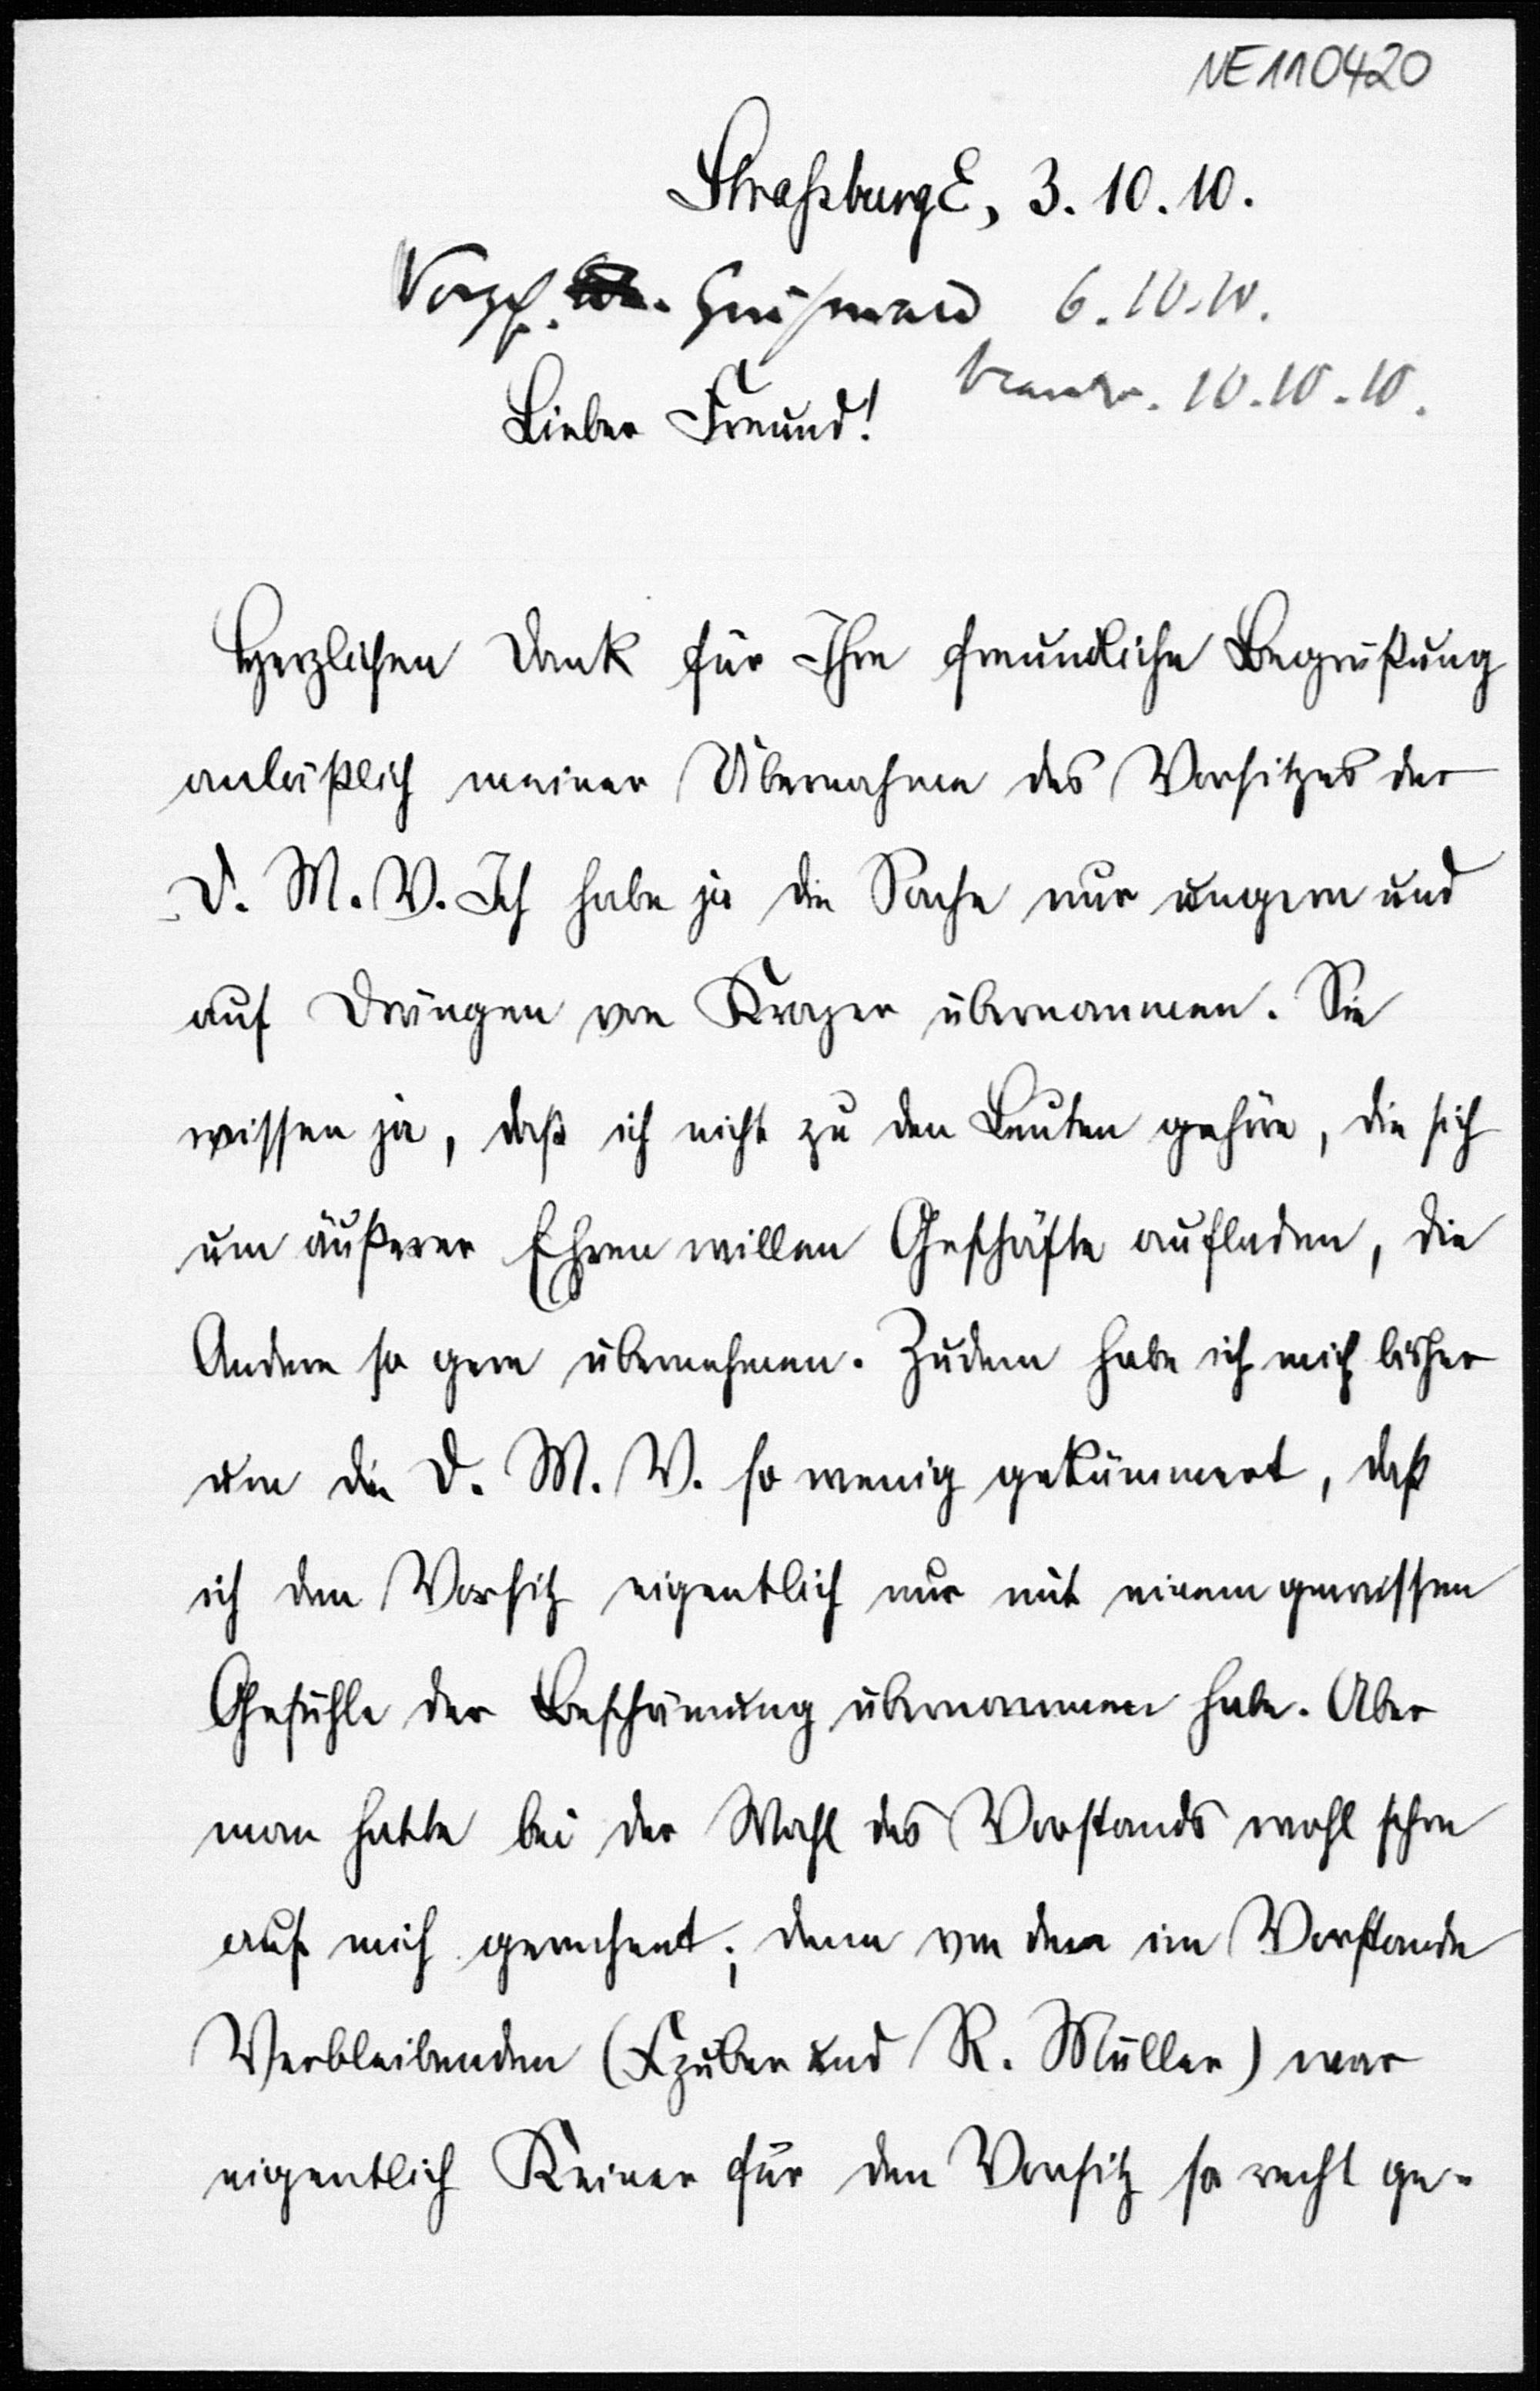 NE110420
Straßburg E, 3. 10. 10.
6. 10. 10.
10. 10. 10.
Lieber Freund!
Herzlichen Dank für Ihre freundliche Begrüßung
anläßlich meiner Übernahme des Vorsitzes der
D. M. V. Ich habe ja die Sache nur ungern und
auf Drängen von Krazer übernommen. Sie
wissen ja, daß ich nicht zu den Leuten gehöre, die sich
um äußerer Ehren willen Geschäfte aufladen, die
Andere so gern übernehmen. Zudem habe ich mich bisher
um die D. M. V. so wenig gekümmert, daß
ich den Vorsitz eigentlich nur mit einem gewissen
Gefühle der Beschämung übernommen habe. Aber
man hatte bei der Wahl des Vorstands wohl schon
auf mich gerechnet; denn von den im Vorstande
Verbleibenden (Czuber und R. Müller) war
eigentlich Keiner für den Vorsitz so recht ge-